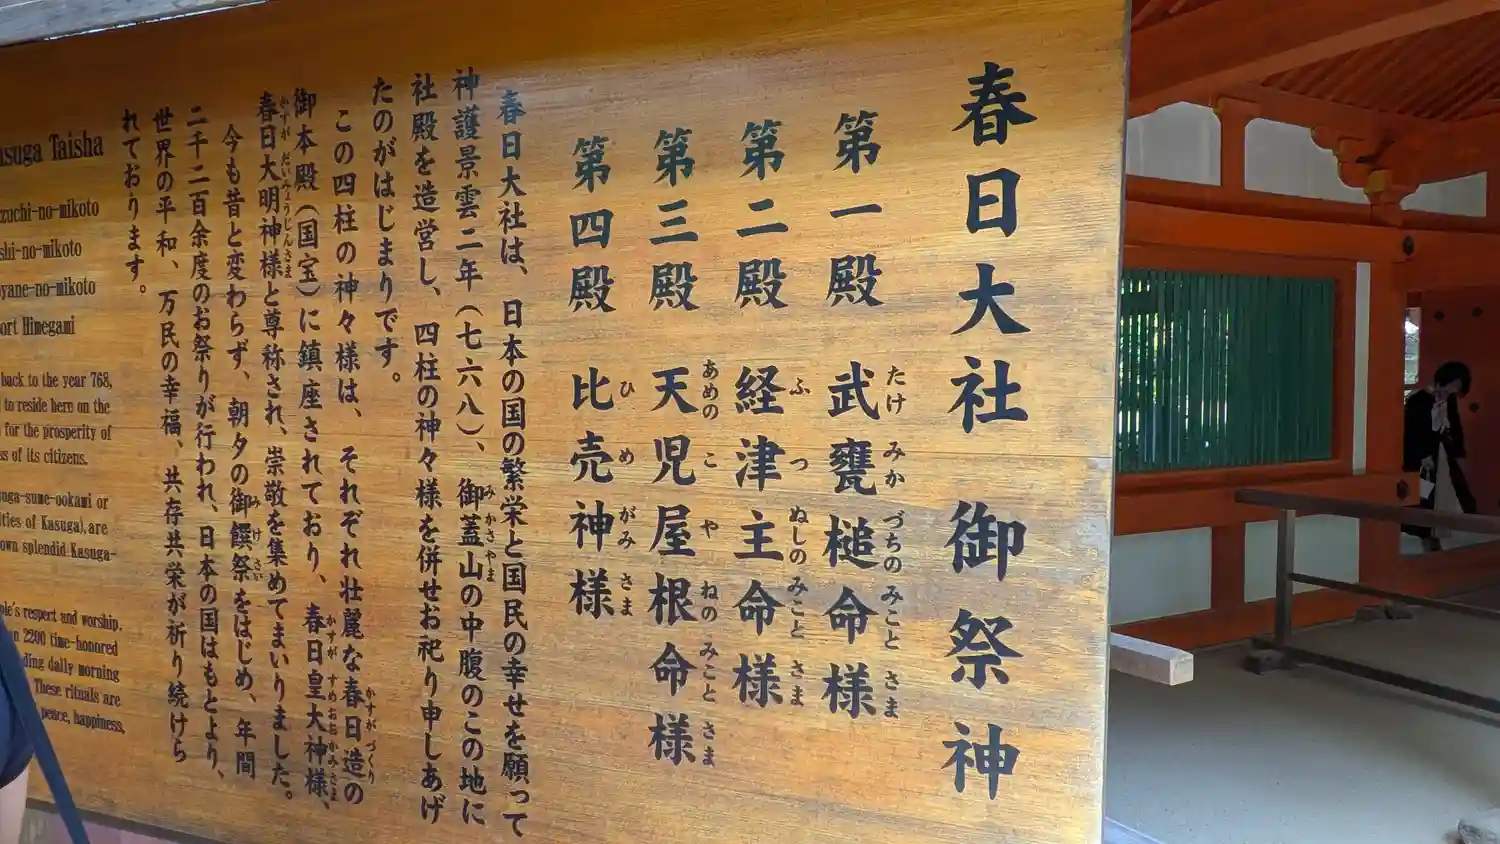 春日大社 御祭神
第一殿 武甕槌命様
たけ みか づちの みこと さま
第二殿 経津主命様
ふ つ ぬしの みこと さま
第三殿 天児屋根命様
あめの こ や ねの みこと さま
第四殿 比売神様
ひ め がみ さま
春日大社は、日本の国の繁栄と国民の幸せを願って
神護景雲二年(七六八)、御蓋山の中腹のこの地に
み かさ やま
社殿を造営し、四柱の神々様を併せお祀り申しあげ
たのがはじまりです。
この四柱の神々様は、それぞれ壮麗な春日造の
かすが づくり
御本殿(国宝)に鎮座されており、春日皇大神様、
かすが すめ おお かみ さま
春日大明神様と尊称され、崇敬を集めてまいりました。
かすが だい みょう じん さま
今も昔と変わらず、朝夕の御饌祭をはじめ、年間
み け さい
二千二百余度のお祭りが行われ、日本の国はもとより、
世界の平和、万民の幸福、共存共栄が祈り続けら
れております。
asuga Taisha
zuchi-no-mikoto
shi-no-mikoto
oyane-no-mikoto
ort Himegami
back to the year 768,
to reside here on the
for the prosperity of
ss of its citizens.
suga-sume-ookami or
ities of Kasuga), are
own splendid Kasuga-
ple's respect and worship.
n 2200 time-honored
ding daily morning
These rituals are
peace, happiness,